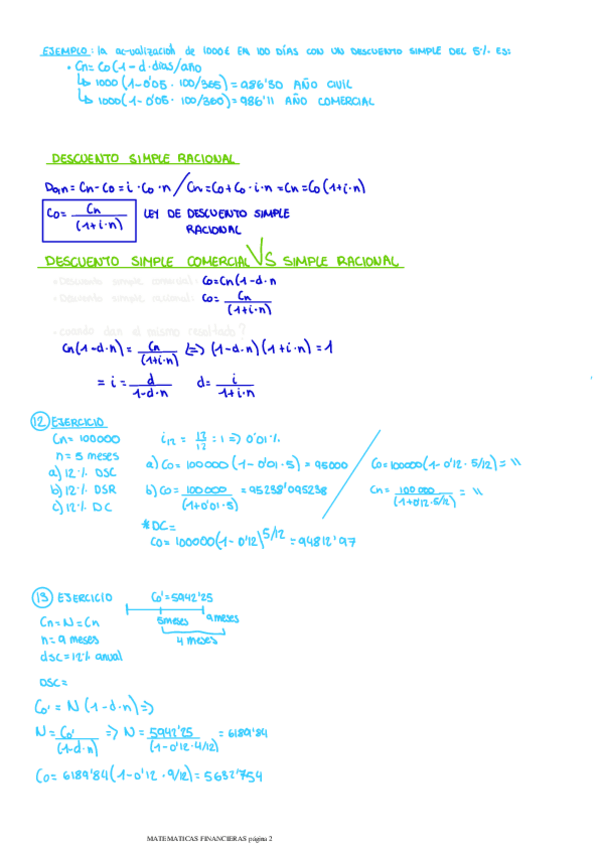 EJEMPLO: la actualización de 1000€ EN 100 DÍAS CON UN DESCUENTO SIMPLE DEL 5% ES:
• Cn = Co(1 - d · días/año
↳ 1000 (1 - 0'05 · 100/365) = 986'30 AÑO CIVIL
↳ 1000(1 - 0'05 · 100/360) = 986'11 AÑO COMERCIAL
DESCUENTO SIMPLE RACIONAL
Do,n = Cn - Co = i · Co · n / Cn = Co + Co · i · n = Cn = Co (1+i·n)
Co = Cn/(1+i·n) LEY DE DESCUENTO SIMPLE
RACIONAL
DESCUENTO SIMPLE COMERCIAL VS SIMPLE RACIONAL
• Descuento simple comercial: Co = Cn(1 - d·n
• Descuento simple racional: Co = Cn/(1+i·n)
• cuando dan el mismo resultado?
Cn(1-d·n) = Cn/(1+i·n) <=> (1-d·n)(1+i·n) = 1
= i = d/(1-d·n) d = i/(1+i·n)
12 EJERCICIO
Cn = 100000 i12 = 12/12 = 1 => 0'01%
n = 5 meses
a) 12% DSC a) Co = 100000 (1 - 0'01 · 5) = 95000 / Co = 100000(1 - 0'12 · 5/12) = \\
b) 12% DSR b) Co = 100000/(1+0'01·5) = 95238'095238 Cn = 100000/(1+0'12·5/12) = \\
c) 12% DC
*DC =
Co = 100000(1 - 0'12)^5/12 = 94812'97
13 EJERCICIO Co' = 5942'25
5 meses 9 meses
4 meses
Cn = N = Cn
n = 9 meses
dsc = 12% anual
DSC =
Co' = N (1 - d·n) =>
N = Co'/(1-d·n) => N = 5942'25/(1-0'12·4/12) = 6189'84
Co = 6189'84(1 - 0'12 · 9/12) = 5632'754
MATEMATICAS FINANCIERAS página 2